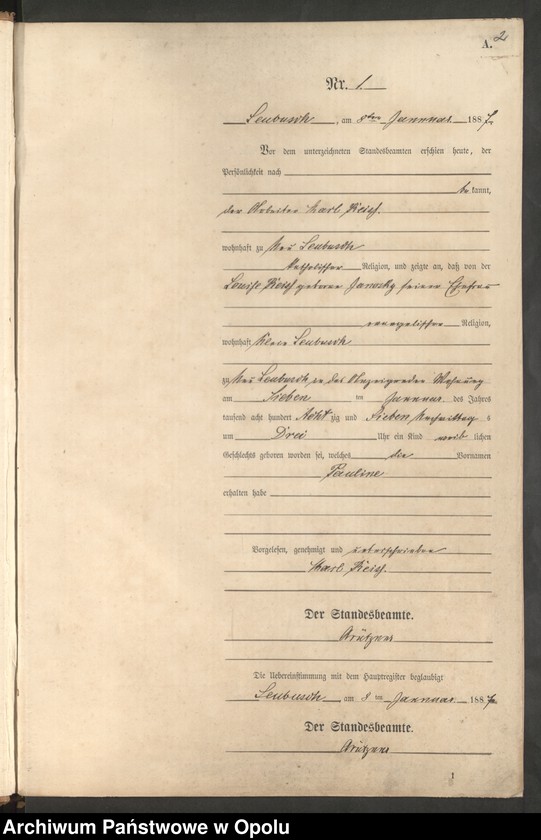 A. 2
Nr. 1.
Leubusch, am 8ten Januar 1887.
Vor dem unterzeichneten Standesbeamten erschien heute, der
Persönlichkeit nach
bekannt,
der Arbeiter Karl
wohnhaft zu Neu Leubusch
katholischer Religion, und zeigte an, daß von der
Louise geborene seiner Ehefrau
evangelischer Religion,
wohnhaft Leubusch
zu Neu Leubusch in des Anzeigenden Wohnung
am Sieben ten Januar des Jahres
tausend acht hundert Acht zig und Sieben, Nachmittag s
um Drei Uhr ein Kind weib lichen
Geschlechts geboren worden sei, welches die Vornamen
Pauline
erhalten habe
Vorgelesen, genehmigt und unterschrieben
Karl
Der Standesbeamte.
Die Uebereinstimmung mit dem Hauptregister beglaubigt
Leubusch am 8 ten Januar 1887.
Der Standesbeamte.
1
Archiwum Państwowe w Opolu